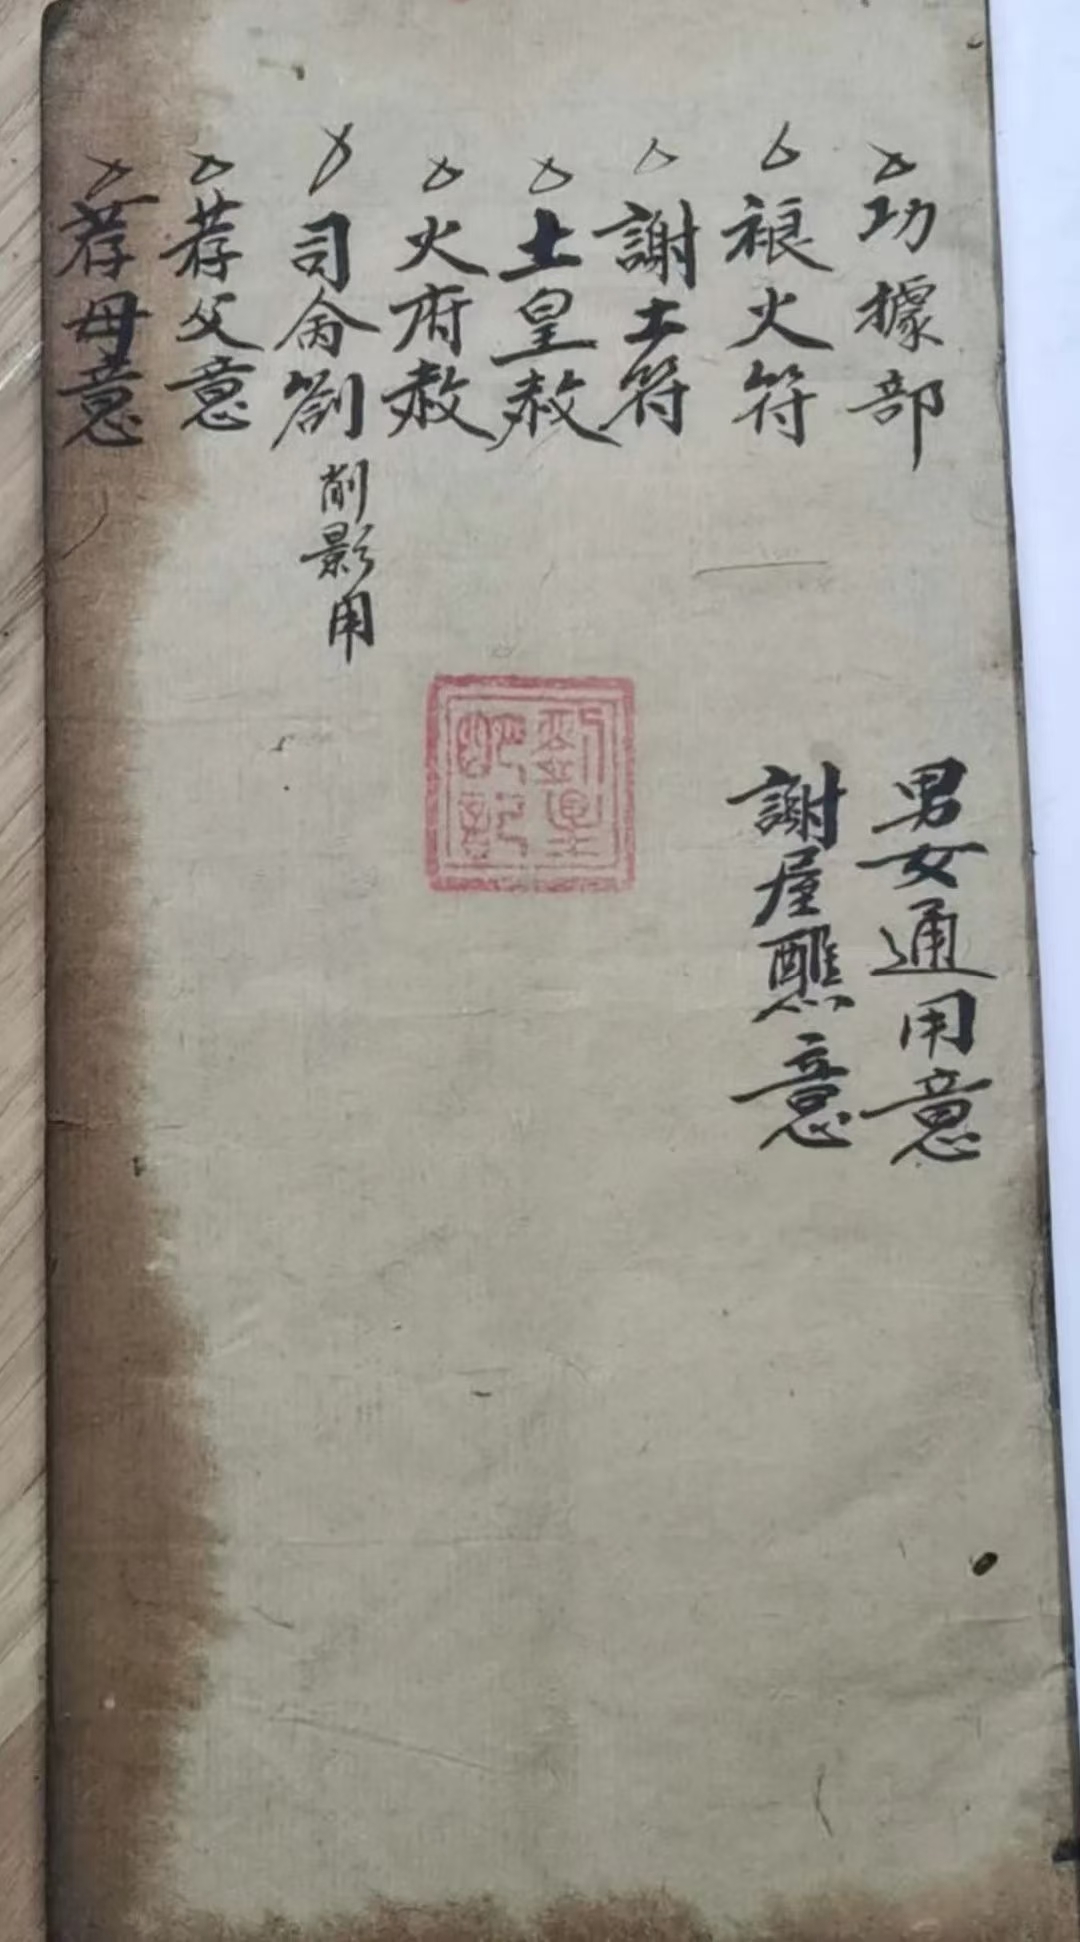 功據部
禳火符
謝土符
土皇赦
火府赦
司命劄
削影用
荐父意
荐母意
男女通用意
謝屋醮意